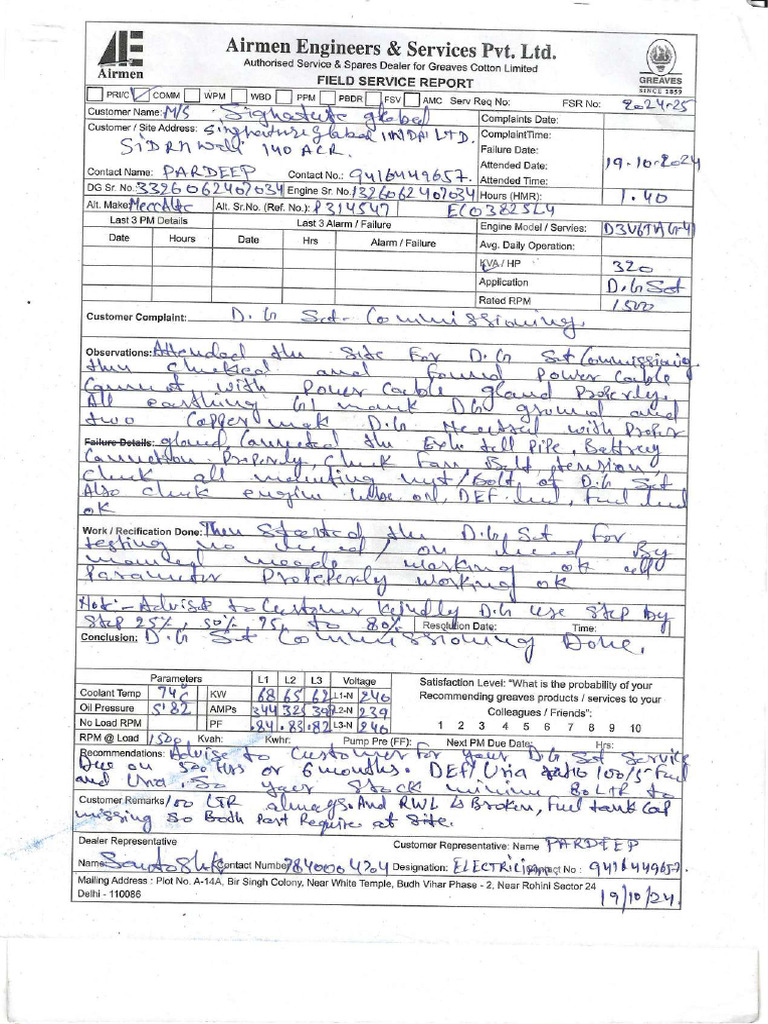 AE Airmen
Airmen Engineers & Services Pvt. Ltd.
Authorised Service & Spares Dealer for Greaves Cotton Limited
FIELD SERVICE REPORT
GREAVES
SINCE 1859
PRI/C COMM WPM WBD PPM PBDR FSV AMC Serv Req No: FSR No: 2024-25
Customer Name: M/S Signature global Complaints Date:
Customer / Site Address: Singhature Global INDAI LTD. ComplaintTime:
140 ACR. Failure Date:
Attended Date: 19-10-2024
Contact Name: PARDEEP Contact No.: 9416449657. Attended Time:
DG Sr. No: 3326062407034 Engine Sr. No: 1326062407034 Hours (HMR): 1.40
Alt. Make: MeccAltc Alt. Sr.No. (Ref. No.): P314547 ECO3825L4
Last 3 PM Details Last 3 Alarm / Failure Engine Model / Servies: D3V6TA(G4)
Date Hours Date Hrs Alarm / Failure Avg. Daily Operation:
KVA / HP 320
Application D.G Set
Rated RPM 1500
Customer Complaint: D.G Set- Commissioning.
Observations: Attended the Site For D.G Set Commissioning.
then checked and found Power Cable
Connect with Power Cable gland Properly.
All earthing DG ground and
two Copper D.G Neutral with Proper
Failure Details: gland Connected the tell Pipe, Battray
Connection Properly, Check Fan Belt tension,
Check all mounting nut/Bolt of D.G Set
Also check engine lube oil, DEF level, Fuel level
ok
Work / Recification Done: Then Started the D.G Set for
testing no load / on load By
manual mode working ok all
Parameter Properly working ok
Not:- Advise to Customer Kindly D.G Use Step by
Step 25%, 50%, 75, to 80% Resolution Date: Time:
Conclusion: D.G Set Commissioning Done.
Parameters L1 L2 L3 Voltage Satisfaction Level: "What is the probability of your
Coolant Temp 74°c KW 68 65 62 L1-N 240 Recommending greaves products / services to your
Oil Pressure 5.82 AMPs 344 325 L2-N 239 Colleagues / Friends":
No Load RPM PF .84 .83 .82 L3-N 240 1 2 3 4 5 6 7 8 9 10
RPM @ Load 1500 Kvah: Kwhr: Pump Pre (FF): Next PM Due Date: Hrs:
Recommendations: Advise to Customer for your D.G Set Service
Due on 500 Hrs or 6 months. DEF/Uria ratio 100/5 Fuel
and Uria. So your Stock minium 80 LTR to
Customer Remarks 100 LTR always. And RWL is Broken, Fuel tank Cap
missing so Both Part Require at Site.
Dealer Representative Customer Representative: Name PARDEEP
Name: Santosh Contact Number 7840004204 Designation: ELECTRICIAN Contact No : 9416449657.
Mailing Address : Plot No. A-14A, Bir Singh Colony, Near White Temple, Budh Vihar Phase - 2, Near Rohini Sector 24
Delhi - 110086 19/10/24.